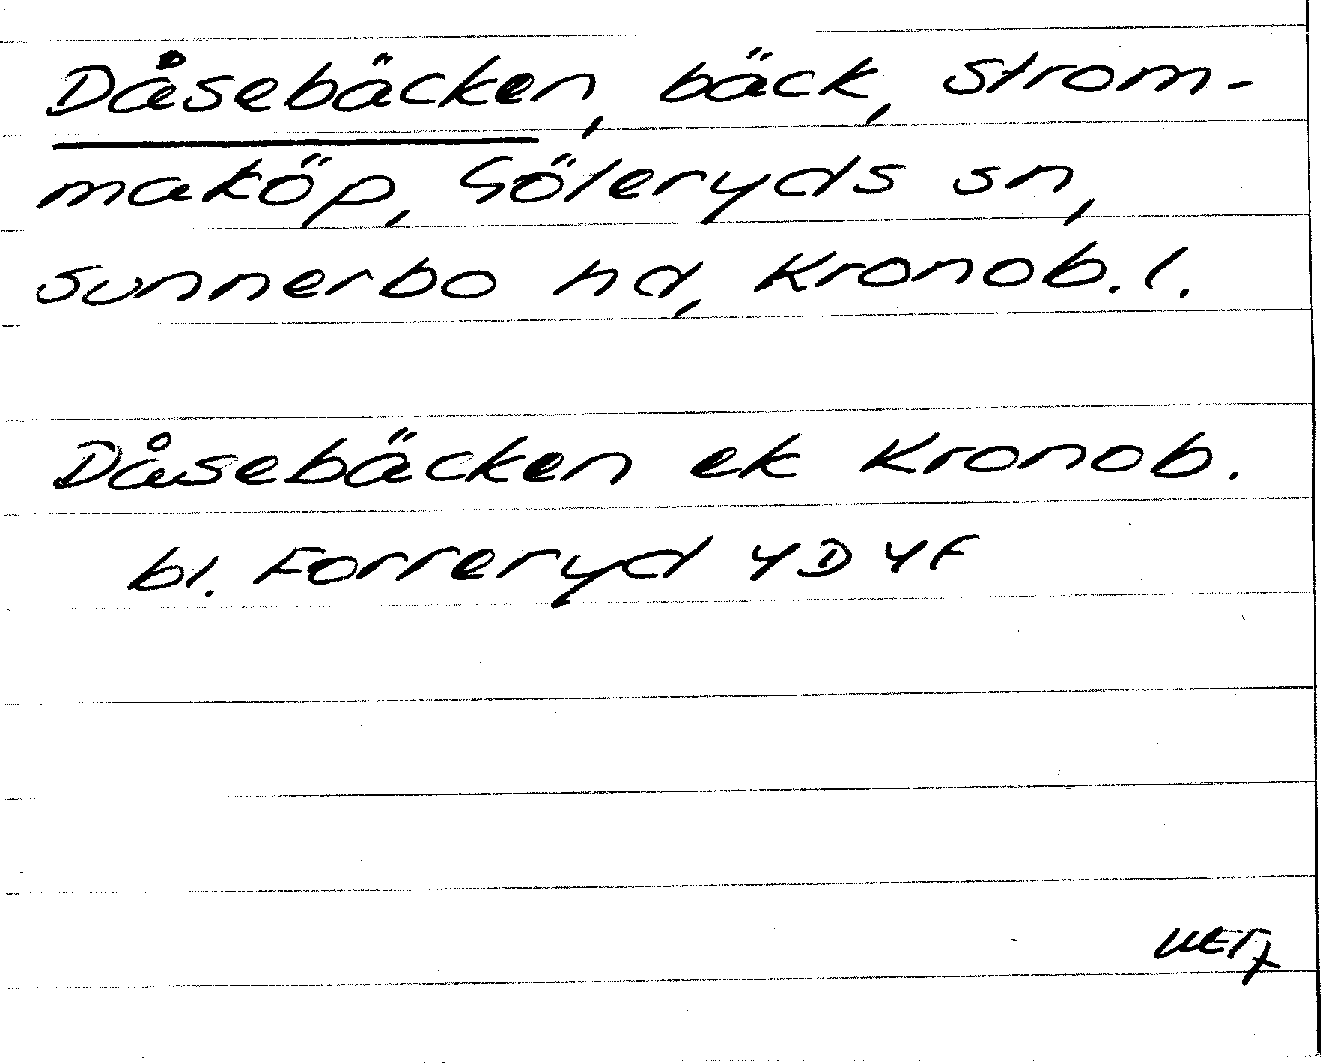 Dåsebäcken, bäck, Strom-
maköp, Göteryds sn,
Sunnerbo hd, Kronob. l.
Dåsebäcken ek Kronob.
bl. Forreryd 4D 4f